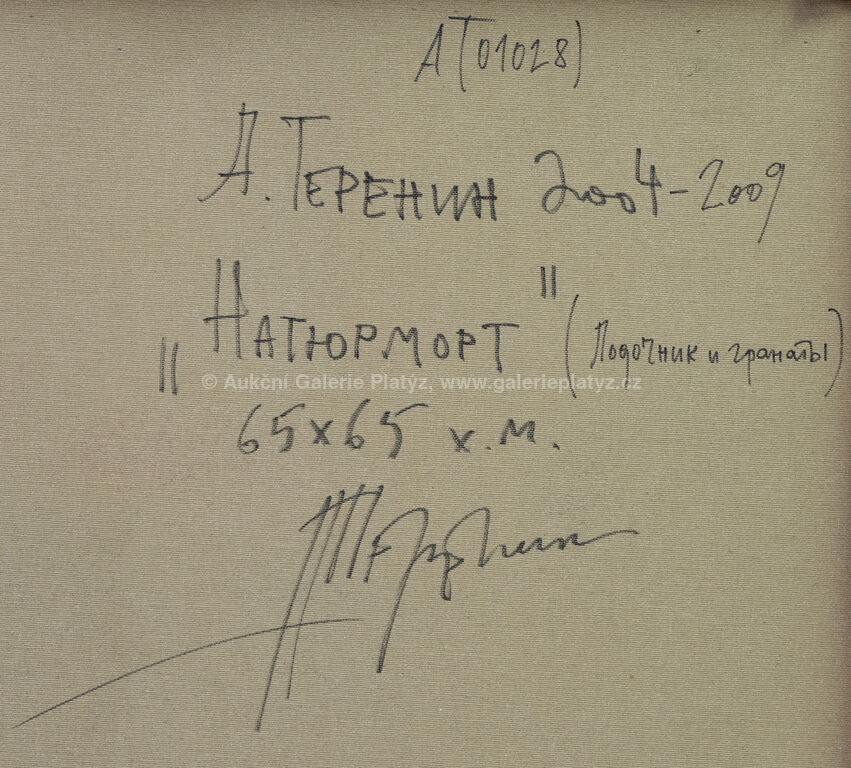 АТ(01028)
А. Теренин 2004-2009
"Натюрморт" (Лодочник и гранаты)
© Aukční Galerie Platýz, www.galerieplatyz.cz
65x65 х.м.